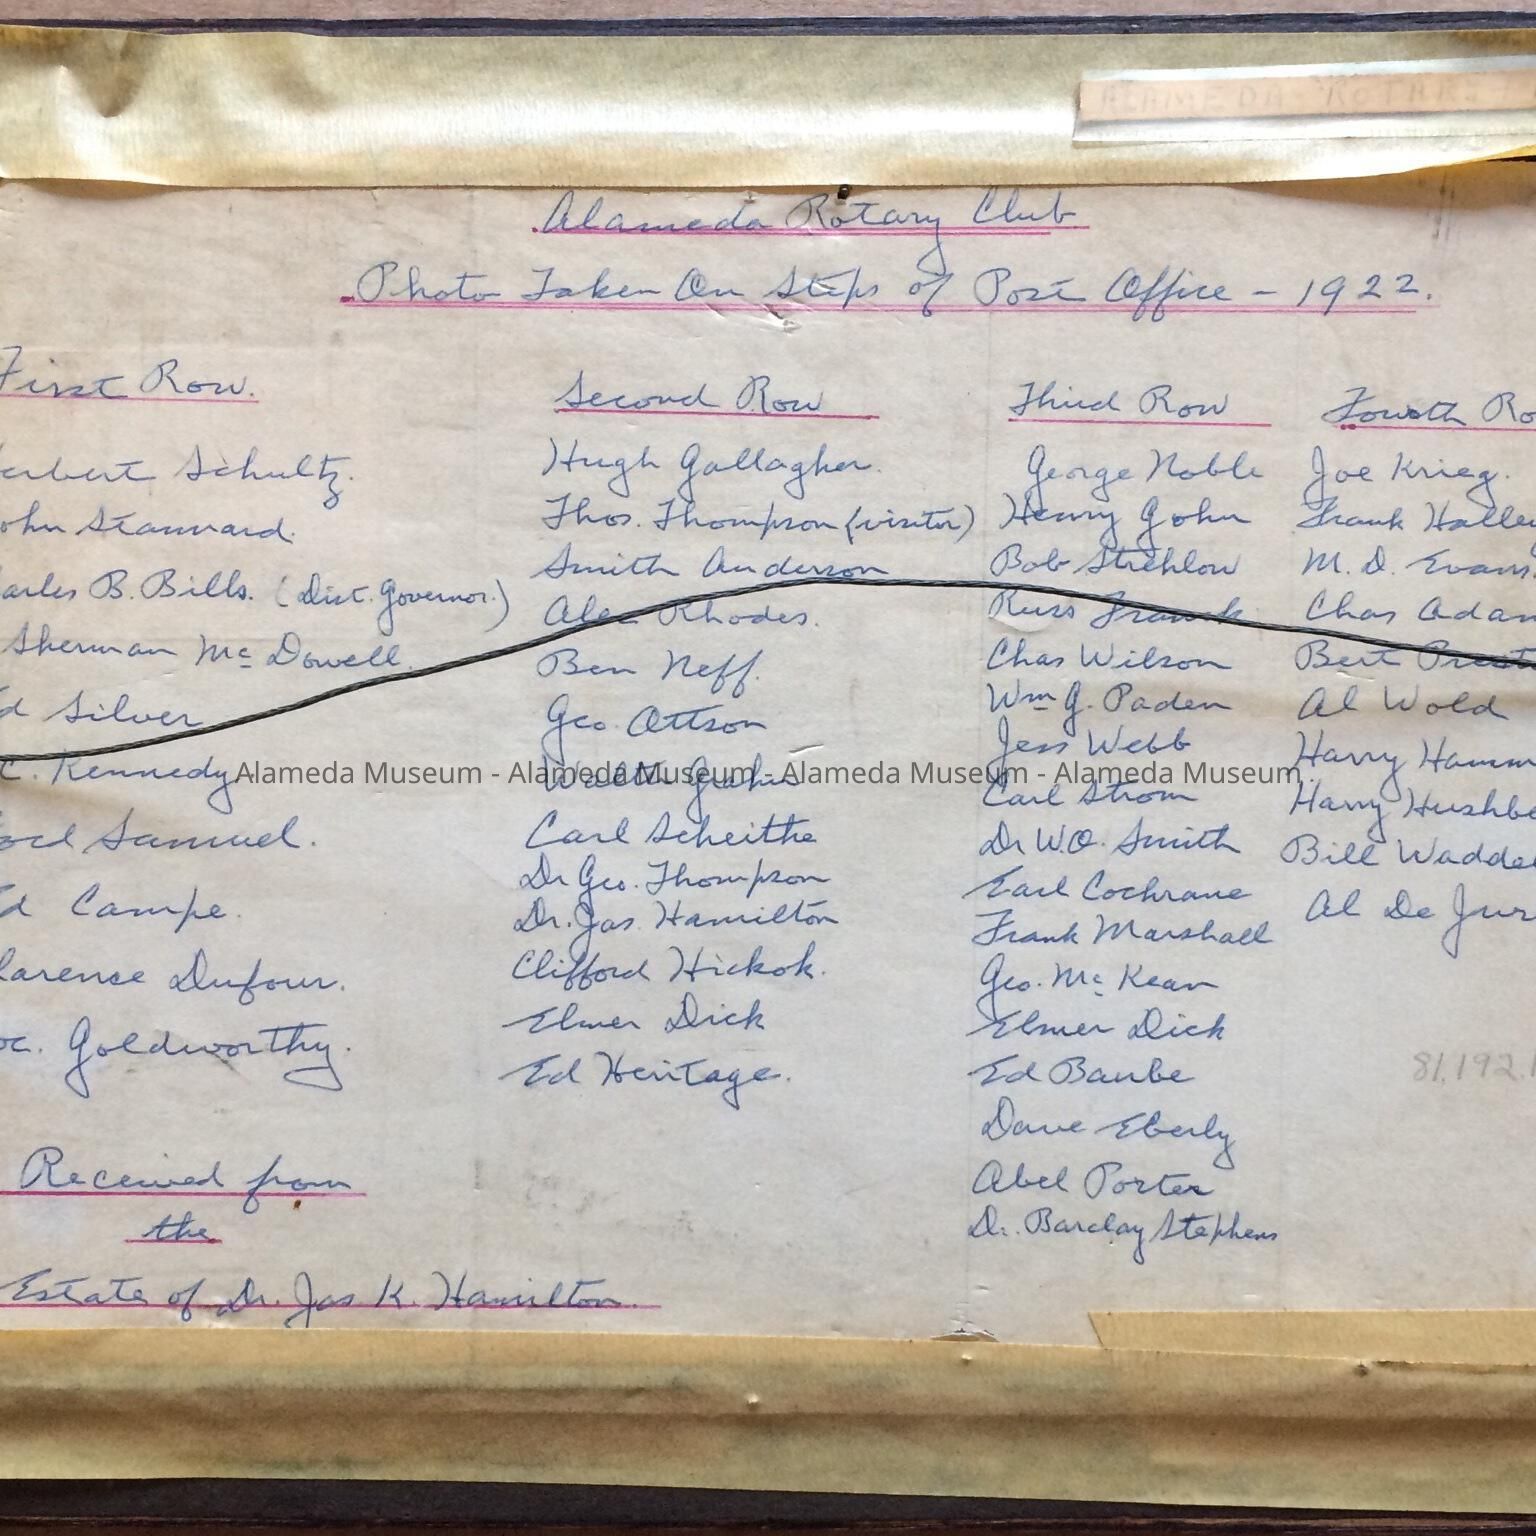 ALAMEDA ROTARY
Alameda Rotary Club
Photo Taken On Steps of Post Office - 1922.
First Row.
erbert Schultz.
ohn Stannard.
arles B. Bills. (Dist. Governor.)
Sherman Mc Dowell.
d Silver
C. Kennedy
Samuel.
d Campe.
larence Dufour.
oc. Goldworthy.
Received from
the
Estate of Dr. Jas K. Hamilton.
Second Row
Hugh Gallagher.
Thos. Thompson (visitor)
Smith Anderson
Alex Rhodes.
Ben Neff.
Geo. Ottson
Carl Scheithe
Dr Geo. Thompson
Dr. Jas. Hamilton
Clifford Hickok.
Elmer Dick
Ed Heritage.
Third Row
George Noble
Henry Gohn
Bob Strehlow
Russ Frank
Chas Wilson
Wm G. Paden
Jess Webb
Carl Strom
Dr W.O. Smith
Earl Cochrane
Frank Marshall
Geo. Mc Kean
Elmer Dick
Ed Baube
Dave Eberly
Abel Porter
Dr. Barclay Stephens
Fourth Ro
Joe Krieg.
Frank Halley
M. D. Evans.
Chas Adam
Bert Prest
Al Wold
Harry Hamm
Harry Hushbe
Bill Waddel
Al De Jur
81.192.1
Alameda Museum - Alameda Museum - Alameda Museum - Alameda Museum